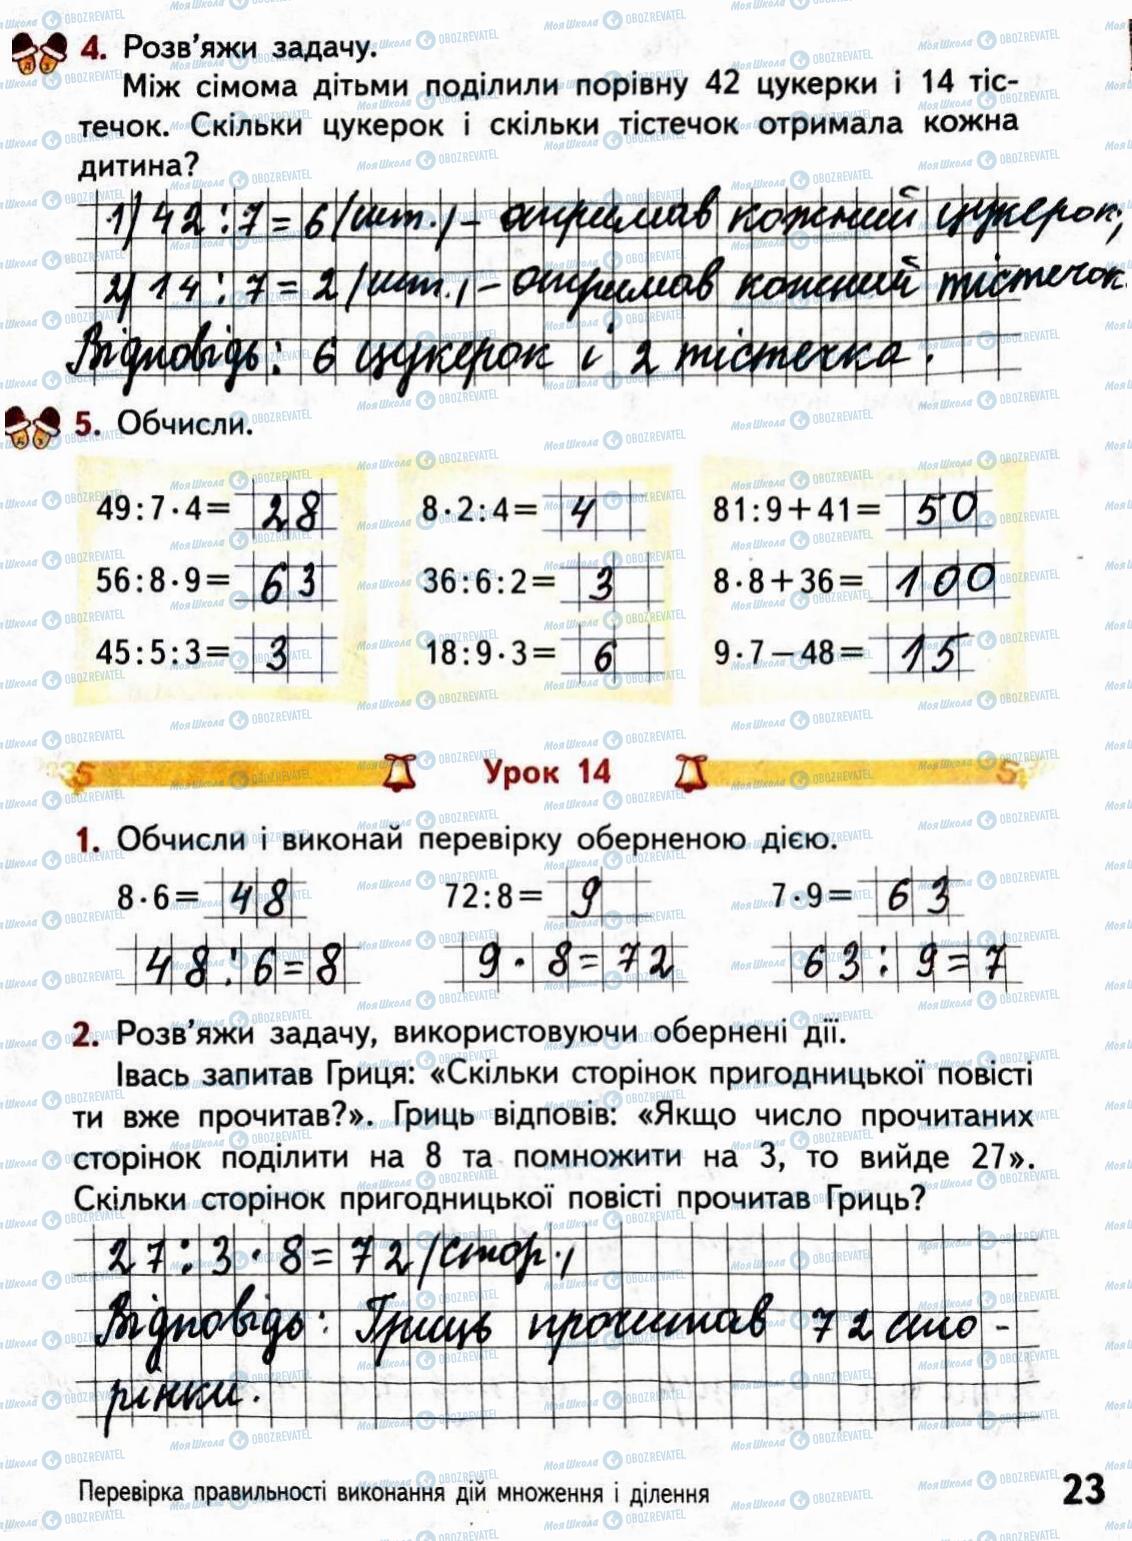 4. Розв'яжи задачу.
Між сімома дітьми поділили порівну 42 цукерки і 14 тіс-
течок. Скільки цукерок і скільки тістечок отримала кожна
дитина?
1) 42 : 7 = 6 (шт.) – отримав кожний цукерок;
2) 14 : 7 = 2 (шт.) – отримав кожний тістечок.
Відповідь: 6 цукерок і 2 тістечка.
5. Обчисли.
49:7·4= 28 8·2:4= 4 81:9+41= 50
56:8·9= 63 36:6:2= 3 8·8+36= 100
45:5:3= 3 18:9·3= 6 9·7−48= 15
Урок 14
1. Обчисли і виконай перевірку оберненою дією.
8·6= 48 72:8= 9 7·9= 63
48:6=8 9·8=72 63:9=7
2. Розв'яжи задачу, використовуючи обернені дії.
Івась запитав Гриця: «Скільки сторінок пригодницької повісті
ти вже прочитав?». Гриць відповів: «Якщо число прочитаних
сторінок поділити на 8 та помножити на 3, то вийде 27».
Скільки сторінок пригодницької повісті прочитав Гриць?
27:3·8=72 (стор.)
Відповідь: Гриць прочитав 72 сто-
рінки.
Перевірка правильності виконання дій множення і ділення 23
МояШкола OBOZREVATEL